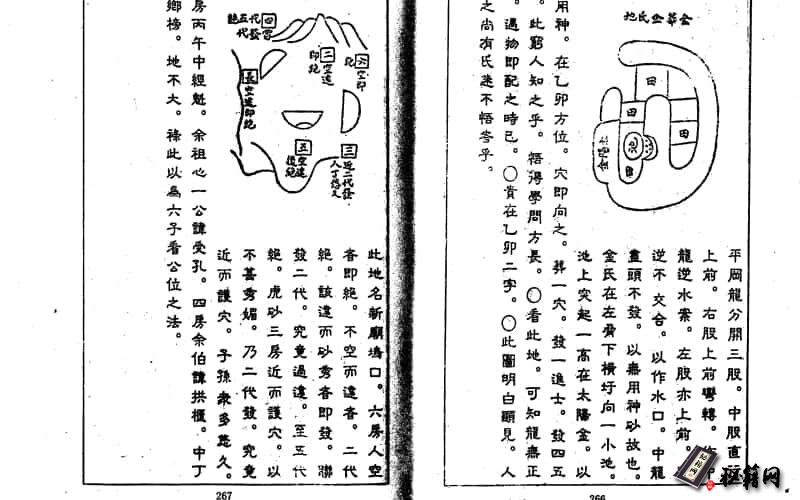 金華金氏地
田
田
田
池
田
平岡龍分開三股。中股直
上前。右股上前彎轉。
龍逆水案。左股亦上前。
逆不交合。以作水口。中龍
盡頭不發。以無用神砂故也。
金氏在左脅下橫圩向一小池。
池上突起一高在太陽金。以
用神。在乙卯方位。穴即向之。葬一穴。發一進士。發四五
。此窮人知之乎。悟得學問方長。○看此地。可知龍無正
。遇物即配之時已。○貴在乙卯二字。○此圖明白顯見。人
之尚有氏迷不悟岑乎。
266
四空發五代絕
二空遠即絕
六空即絕
長空遠即絕
五空遠後絕
三近二代發人丁悠久
此地名新廟塢口。六房人空
者即絕。不空而遠者。二代
絕。該遠而砂秀者即發。聯
發二代。究竟過遠。至五代
絕。虎砂三房近而護穴。以
不甚秀媚。乃二代發。究竟
近而護穴。子孫衆多悠久。
房丙午中經魁。余祖心一公諱受孔。四房余伯諱拱櫃。中丁
鄉榜。地不大。祿此以爲六子看公位之法。
267
秘籍网